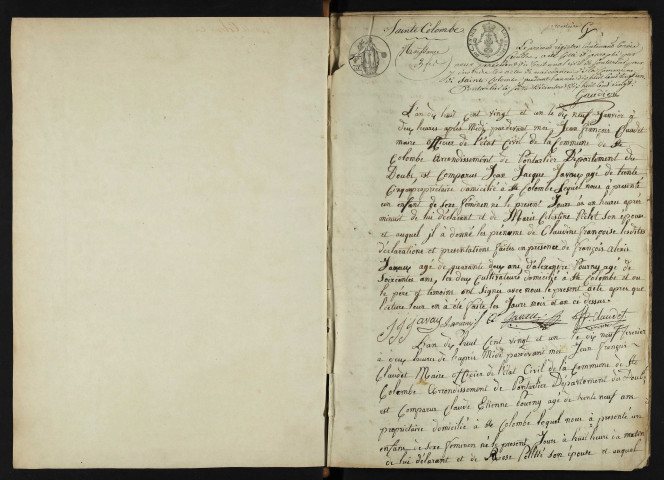 Sainte Colombe
Naissance
Le présent registre contenant
feuillets, a été coté et paraphé par
nous président du tribunal civil de Pontarlier pour
les actes de naissance de la Commune
de Sainte Colombe pendant l'année dix huit cent vingt un
L'an dix huit cent vingt et un le dix neuf Janvier à
deux heures après Midi pardevant moi Jean François Claudet
maire officier de l'état Civil de la Commune de Ste
Colombe arrondissement de Pontarlier Département du
Doubs, est Comparus Jean Jacque Javaux agé de trente
Cinq propriétaire domicilié à Ste Colombe Lequel nous à présenté
un enfant de sexe féminen né le present Jours à un heures après
minuit de lui déclarant et de Marie Celestine son épouse
et auquel il à donné les prénoms de Claudine Françoise lesdites
déclarations et presentations faites en presence de François
Javaux agé de quarante deux ans Pourny agé de
soixante ans, les deux Cultivateurs domiciliés à Ste Colombe et ont
le père et temoins ont signés avec nous le present acte après que
Lecture leur en à été faite les Jours mois et an ci dessus.
JJ Javaux Claudet
L'an dix huit Cent vingt et un le dix neuf fevrier
à deux heures de laprès Midi pardevant moi Jean François
Claudet Maire officier de l'état Civil de la Commune de Ste
Colombe arrondissement de Pontarlier Département du Doubs
est Comparus Claude Etienne Pourny agé de trente neuf ans
propriétaire domicilié à Ste Colombe lequel nous à présenté un
enfant de sexe féminen né le present Jours à huit heures du matin
de lui déclarant et de son épouse et auquel